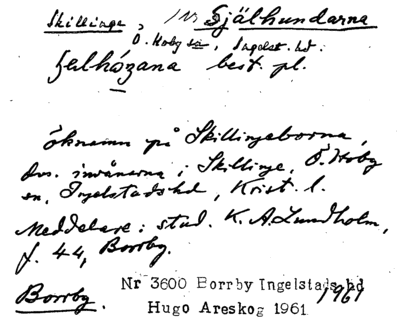 Skillinge, Själhundarna
Ö. Hoby sn, Ingelst. hd.
best. pl.
öknamn på Skillingeborna,
dvs. invånarna i Skillinge, Ö. Hoby
sn, Ingelstads hd, Krist. l.
Meddelare: stud. K. A. Lundholm,
f. 44, Borrby.
Nr 3600 Borrby Ingelstads hd
1961
Borrby. Hugo Areskog 1961